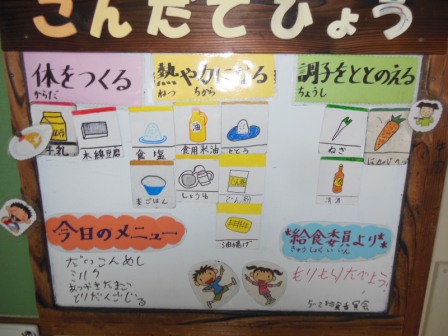 こんだてひょう
体をつくる
からだ
熱や力になる
ねつ ちから
調子をととのえる
ちょうし
牛乳
木綿豆腐
食塩
食用米油
さとう
ねぎ
麦ごはん
しょうゆ
でん粉
清酒
油揚げ
今日のメニュー
だいこんめし
ミルク
あつやきたまご
とりだんごじる
給食委員より
きゅうしょくいいん
もりもりたべよう。